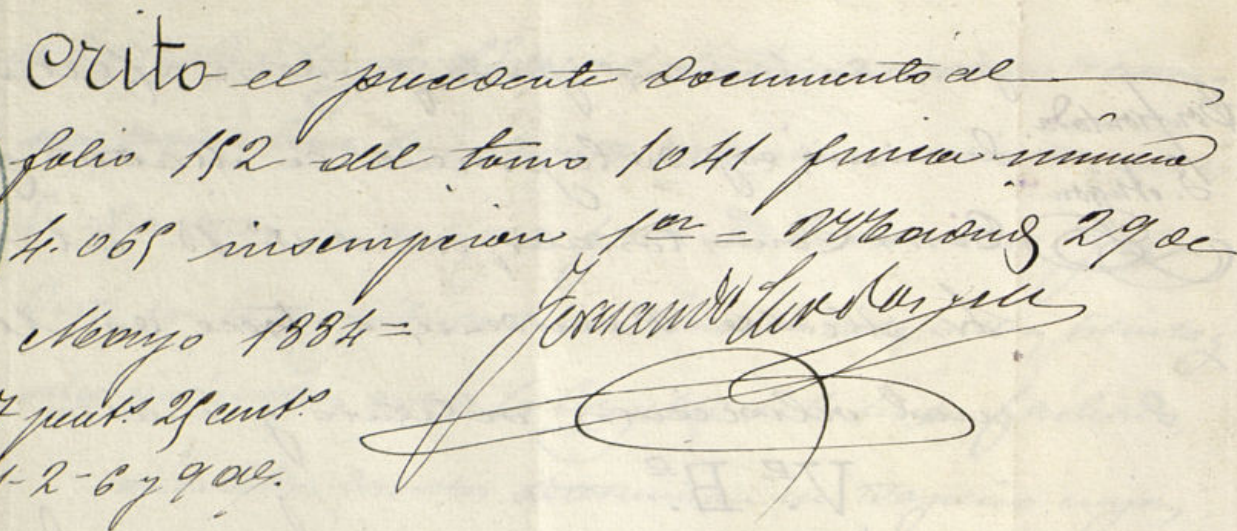 crito el precedente documento al
folio 152 del tomo 1041 finca número
4.065 inscripcion 1ª = Madrid 29 de
Mayo 1884 =
pest.s 25 cent.s
1-2-6 y 9 del.
Vº Bº